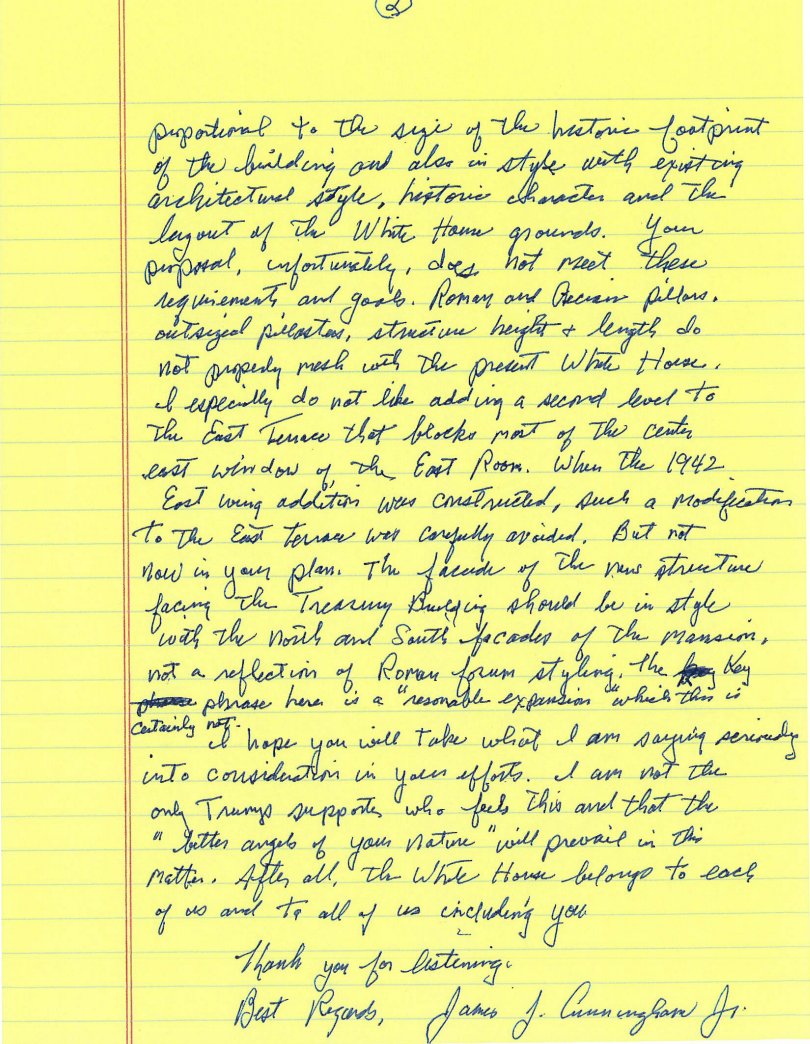 2
proportional to the size of the historic footprint
of the building and also in style with existing
architectural style, historic character and the
layout of the White House grounds. Your
proposal, unfortunately, does not meet these
requirements and goals. Roman and Grecian pillars,
outsized pilasters, structure height & length do
not properly mesh with the present White House.
I especially do not like adding a second level to
the East Terrace that blocks most of the center
east window of the East Room. When the 1942
East wing addition was constructed, such a modification
to the East terrace was carefully avoided. But not
now in your plan. The facade of the new structure
facing the Treasury Building should be in style
with the North and South facades of the mansion,
not a reflection of Roman forum styling. The key Key
phrase phrase here is a "resonable expansion" which this is
certainly not.
I hope you will take what I am saying seriously
into consideration in your efforts. I am not the
only Trump supporter who feels this and that the
"better angels of your nature" will prevail in this
matter. After all, the White House belongs to each
of us and to all of us including you
Thank you for listening.
Best Regards, James J. Cunningham Jr.